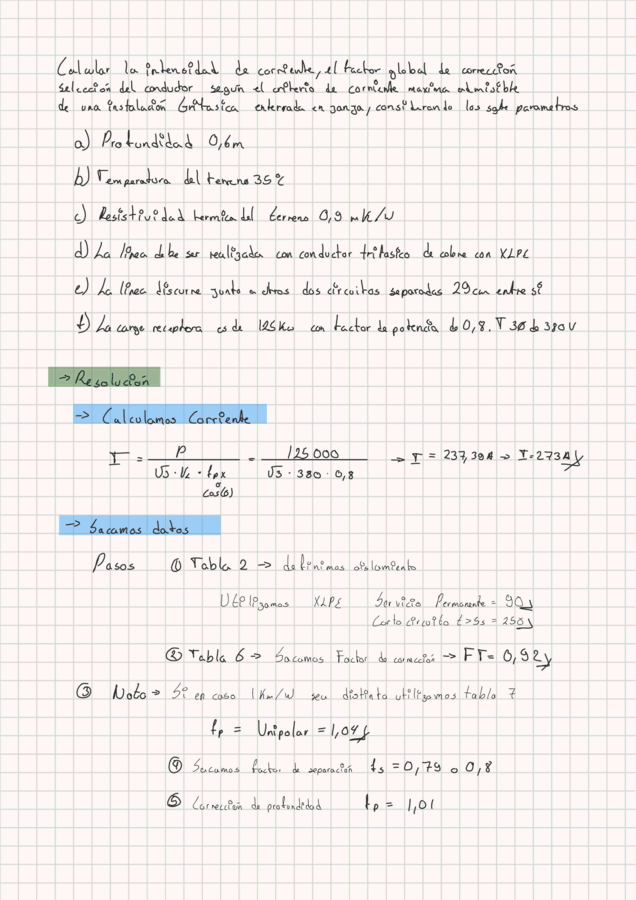 Calcular la intensidad de corriente, el factor global de corrección
selección del conductor según el criterio de corriente maxima admisible
de una instalación trifasica enterrada en zanja, considerando los sgte parametros
a) Profundidad 0,6m
b) Temperatura del terreno 35°C
c) Resistividad termica del terreno 0,9 mK/W
d) La linea debe ser realizada con conductor trifasico de cobre con XLPE
e) La linea discurre junto a otros dos circuitos separadas 29cm entre sí
f) La carga receptora es de 125Kw con factor de potencia de 0,8. T 3Ø de 380V
→ Resolución
→ Calculamos Corriente
I = P / √3 · VL · fpx = 125000 / √3 · 380 · 0,8 → I = 237,39A → I=273A
cos(θ)
→ Sacamos datos
Pasos ① Tabla 2 → definimos aislamiento
Utilizamos XLPE Servicio Permanente = 90
Corto circuito t>5s = 250
② Tabla 6 → Sacamos Factor de corrección → FT= 0,92
③ Nota → Si en caso 1Km/W sea distinto utilizamos tabla 7
fp = Unipolar = 1,04
④ Sacamos factor de separación fs = 0,79 o 0,8
⑤ Corrección de profundidad fp = 1,01